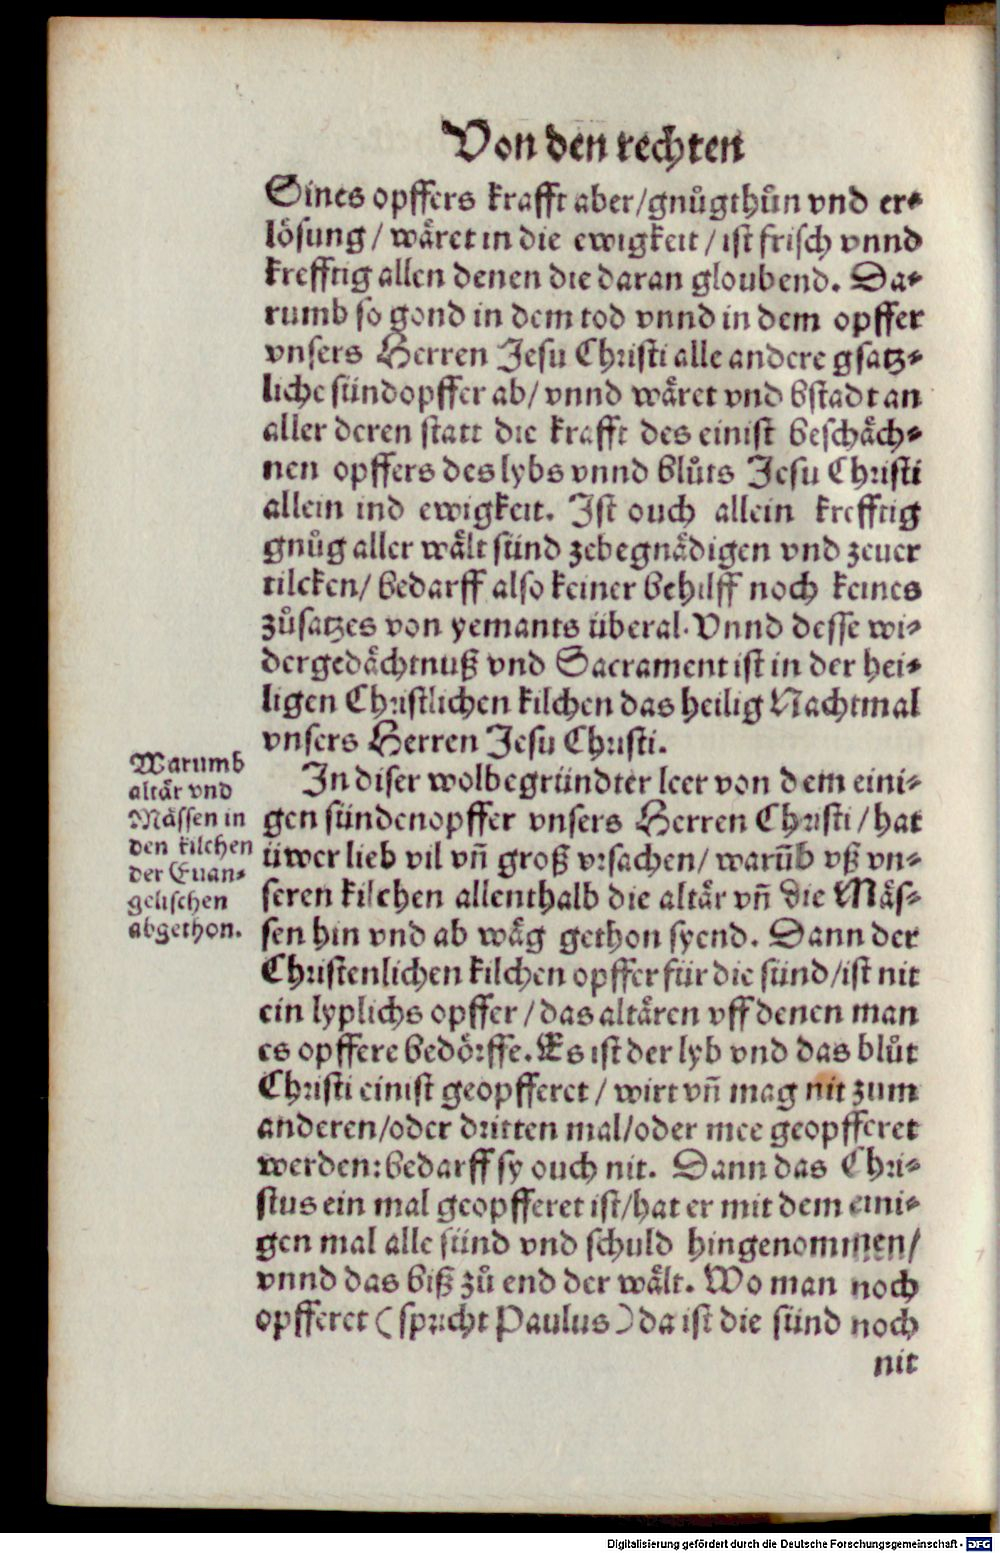 Von den rechten
Sines opffers krafft aber/gnůgthůn vnd er⸗
lösung / wäret in die ewigkeit / ist frisch vnnd
krefftig allen denen die daran gloubend. Da⸗
rumb so gond in dem tod vnnd in dem opffer
vnsers Herren Jesu Christi alle andere gsatz⸗
liche sündopffer ab/ vnnd wäret vnd bstadt an
aller deren statt die krafft des einist beschäch⸗
nen opffers des lybs vnnd blůts Jesu Christi
allein ind ewigkeit. Ist ouch allein krefftig
gnůg aller wält sünd zebegnädigen vnd zeuer
tilcken/ bedarff also keiner behilff noch keines
zůsatzes von yemants überal. Vnnd desse wi⸗
dergedächtnuß vnd Sacrament ist in der hei⸗
ligen Christlichen kilchen das heilig Nachtmal
vnsers Herren Jesu Christi.
In diser wolbegründter leer von dem eini⸗
gen sündenopffer vnsers Herren Christi / hat
üwer lieb vil vn̄ groß vrsachen/ warūb vß vn⸗
seren kilchen allenthalb die altär vn̄ die Mäs⸗
sen hin vnd ab wäg gethon syend. Dann der
Christenlichen kilchen opffer für die sünd/ist nit
ein lyplichs opffer / das altären vff denen man
es opffere bedörffe. Es ist der lyb vnd das blůt
Christi einist geopfferet / wirt vn̄ mag nit zum
anderen/oder dritten mal/oder mee geopfferet
werden: bedarff sy ouch nit. Dann das Chri⸗
stus ein mal geopfferet ist/hat er mit dem eini⸗
gen mal alle sünd vnd schuld hingenommen/
vnnd das biß zů end der wält. Wo man noch
opfferet (spricht Paulus) da ist die sünd noch
nit
Warumb
altär vnd
Mässen in
den kilchen
der Euan⸗
gelischen
abgethon.
Digitalisierung gefördert durch die Deutsche Forschungsgemeinschaft - DFG